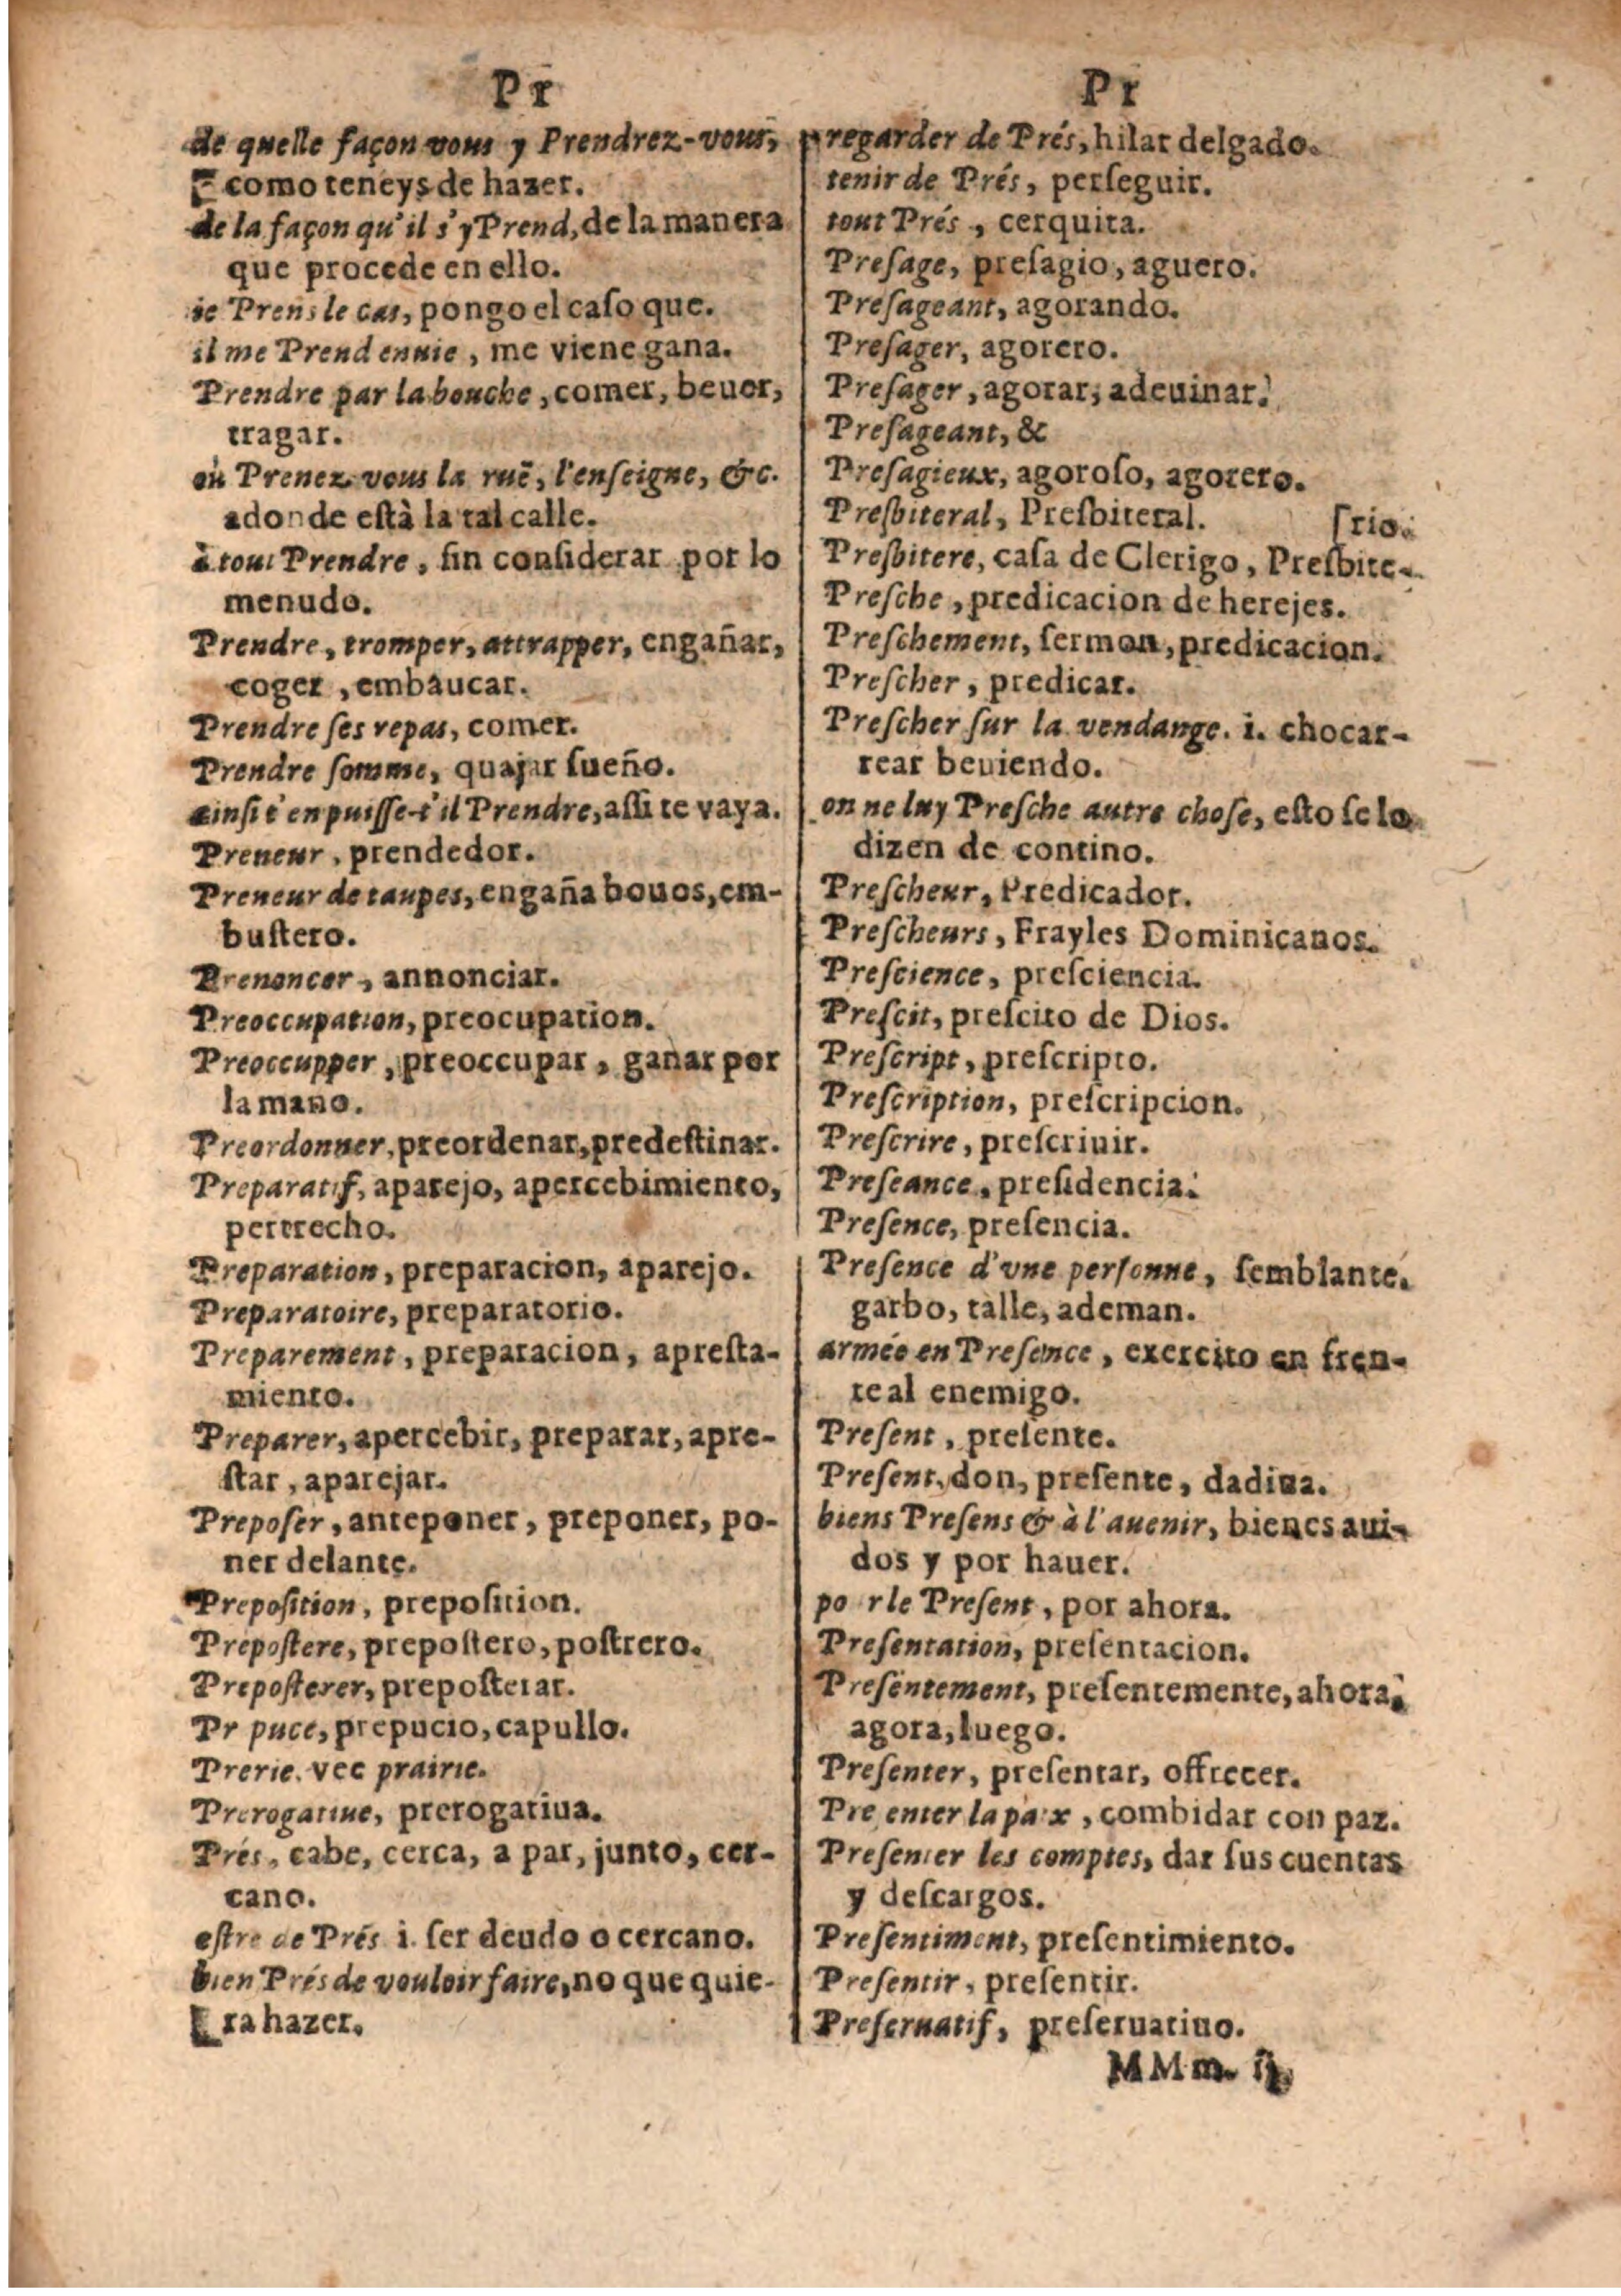 Pr
de quelle façon vous y Prendrez-vous,
como teneys de hazer.
de la façon qu'il s'y Prend, de la manera
que procede en ello.
ie Prens le cas, pongo el caſo que.
il me Prend enuie, me viene gana.
Prendre par la bouche, comer, beuer,
tragar.
où Prenez vous la ruë, l'enſeigne, &c.
adonde eſtà la tal calle.
à tout Prendre, ſin conſiderar por lo
menudo.
Prendre, tromper, attrapper, engañar,
coger, embaucar.
Prendre ſes repas, comer.
Prendre ſomme, quajar ſueño.
ainſi t'en puiſſe-t'il Prendre, aſſi te vaya.
Preneur, prendedor.
Preneur de taupes, engaña bouos, em-
buſtero.
Prenoncer, annonciar.
Preoccupation, preocupation.
Preoccupper, preoccupar, ganar por
la mano.
Preordonner, preordenar, predeſtinar.
Preparatif, aparejo, apercebimiento,
pertrecho.
Preparation, preparacion, aparejo.
Preparatoire, preparatorio.
Preparement, preparacion, apreſta-
miento.
Preparer, apercebir, preparar, apre-
ſtar, aparejar.
Prepoſer, anteponer, preponer, po-
ner delante.
Prepoſition, prepoſition.
Prepoſtere, prepoſtero, poſtrero.
Prepoſterer, prepoſterar.
Pr puce, prepucio, capullo.
Prerie. vee prairie.
Prerogatiue, prerogatiua.
Prés, cabe, cerca, a par, junto, cer-
cano.
eſtre de Prés i. ſer deudo o cercano.
bien Prés de vouloir faire, no que quie-
ra hazer.
Pr
regarder de Prés, hilar delgado.
tenir de Prés, perſeguir.
tout Prés, cerquita.
Preſage, preſagio, aguero.
Preſageant, agorando.
Preſager, agorero.
Preſager, agorar, adeuinar.
Preſageant, &
Preſagieux, agoroſo, agorero.
Preſbiteral, Preſbiteral. [rio.
Preſbitere, caſa de Clerigo, Preſbite-
Preſche, predicacion de herejes.
Preſchement, ſermon, predicacion.
Preſcher, predicar.
Preſcher ſur la vendange. i. chocar-
rear beuiendo.
on ne luy Preſche autre choſe, eſto ſe lo
dizen de contino.
Preſcheur, Predicador.
Preſcheurs, Frayles Dominicanos.
Preſcience, preſciencia.
Preſcit, preſcito de Dios.
Preſcript, preſcripto.
Preſcription, preſcripcion.
Preſcrire, preſcriuir.
Preſeance, preſidencia.
Preſence, preſencia.
Preſence d'vne perſonne, ſemblante.
garbo, talle, ademan.
armée en Preſence, exercito en fren-
te al enemigo.
Preſent, preſente.
Preſent, don, preſente, dadiua.
biens Preſens & à l'auenir, bienes aui-
dos y por hauer.
po r le Preſent, por ahora.
Preſentation, preſentacion.
Preſentement, preſentemente, ahora,
agora, luego.
Preſenter, preſentar, offrecer.
Pre enter la paix, combidar con paz.
Preſenter les comptes, dar ſus cuentas
y deſcargos.
Preſentiment, preſentimiento.
Preſentir, preſentir.
Preſeruatif, preſeruatiuo.
MMm. ij